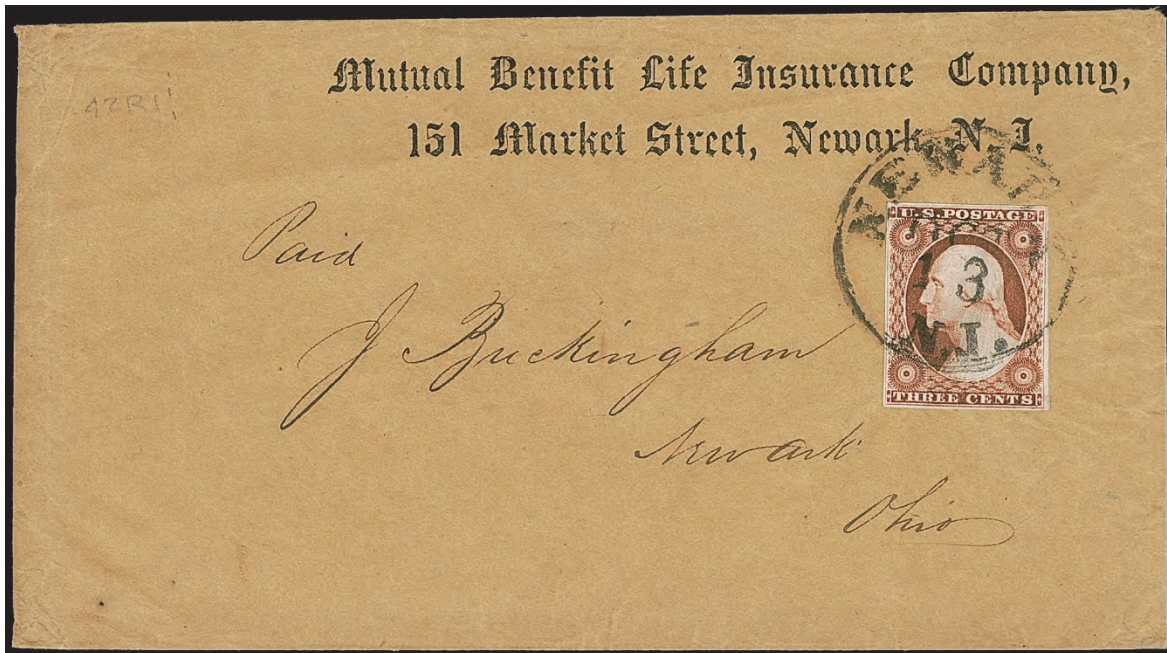 Mutual Benefit Life Insurance Company,
151 Market Street, Newark, N. J.
NEWARK
13
N.J.
U.S. POSTAGE
THREE CENTS
Paid
J Buckingham
Newark
Ohio